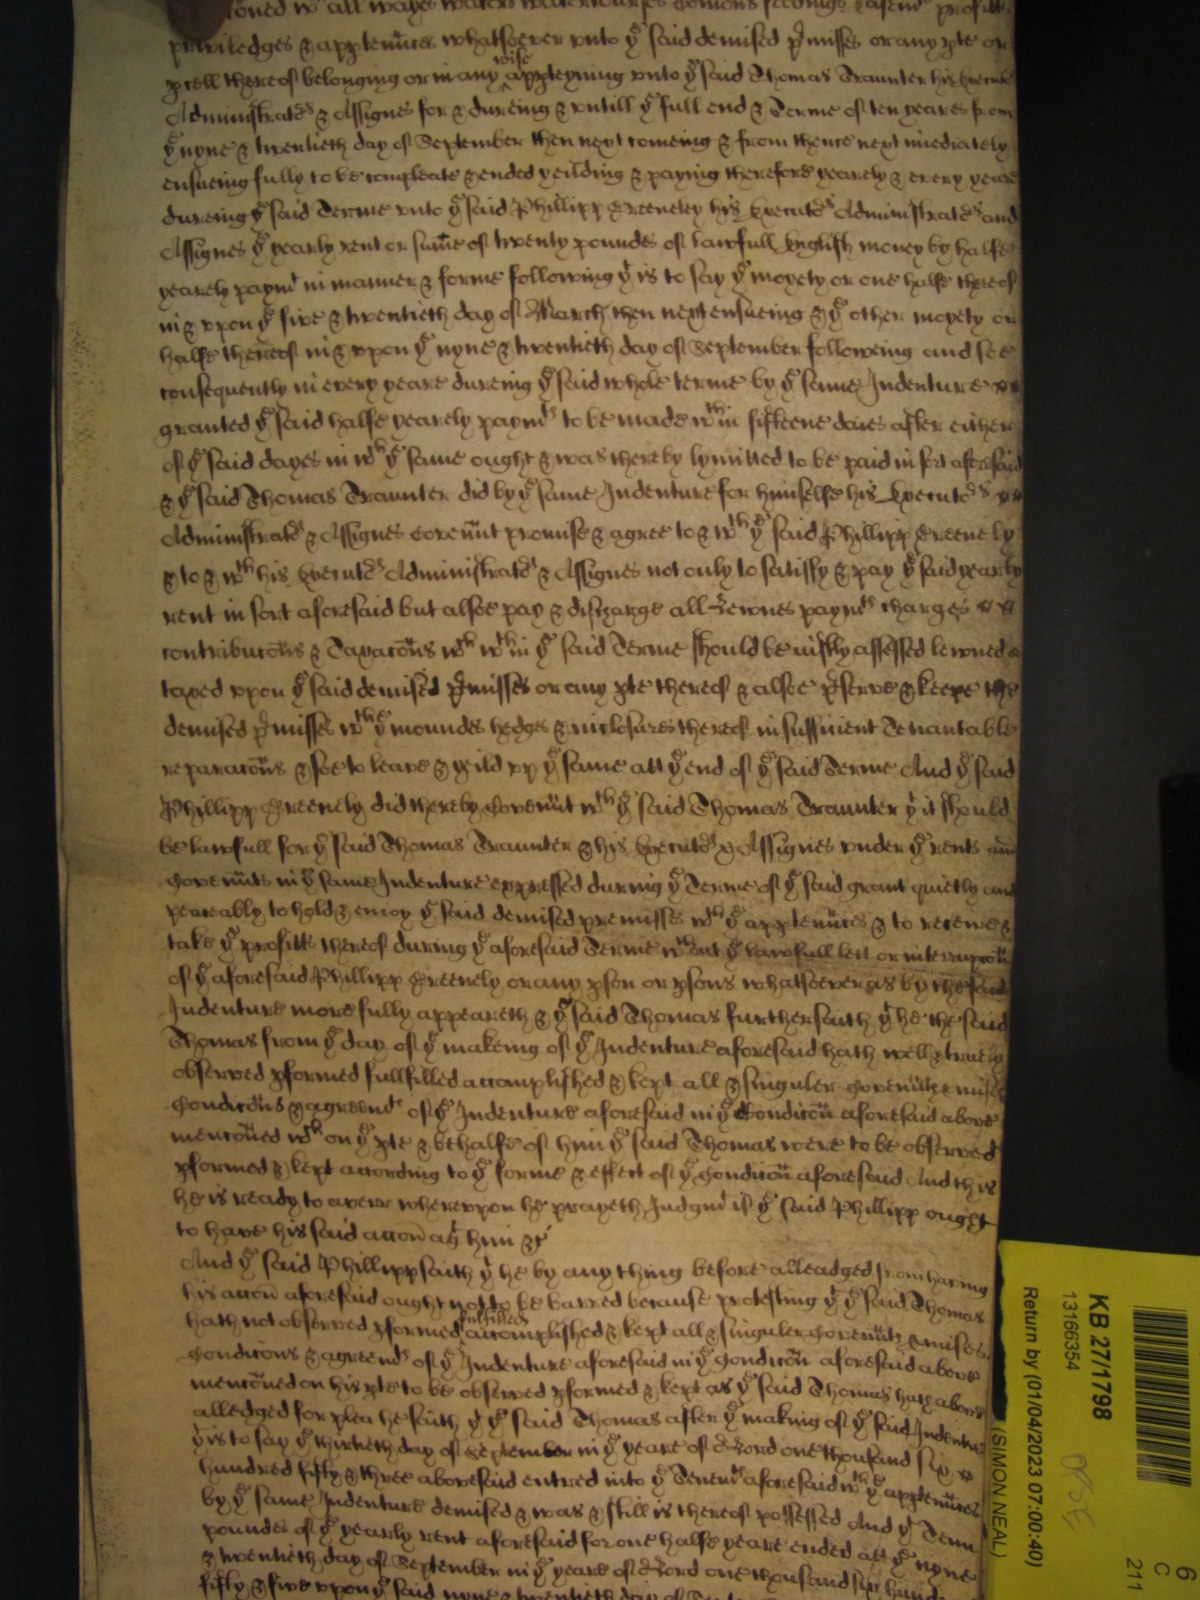 all wayes waters watercourses Comons feedings Easemts profitts
priviledges & apptennces whatsoever unto ye said demised prmisses or any pte or
pcell thereof belonging or in any wise appteyning unto ye said Thomas Traunter his Execut
Administratrs & Assignes for & dureing & untill ye full end & Terme of ten yeares from
ye nyne & twentieth day of September then next comeing & from thence next imediately
ensueing fully to be compleate & ended yeilding & paying therefore yearely & every yeare
dureing ye said Terme unto ye said Phillipp Greeneley his Executrs Administratrs and
Assignes ye yearly rent or sume of twenty poundes of lawfull English money by halfe
yearely paymt in manner & forme following yt is to say ye moyety or one halfe thereof
in & upon ye five & twentieth day of March then next ensueing & ye other moyety or
halfe thereof in & upon ye nyne & twentieth day of September following and soe
consequently in every yeare dureing ye said whole terme by ye same Indenture
granted ye said halfe yearely paymts to be made wthin fifteene daies after either
of ye said dayes in wch ye same ought & was thereby lymitted to be paid in sort aforesaid
& ye said Thomas Traunter did by ye same Indenture for himselfe his Executrs
Administratrs & Assignes Covennt promise & agree to & wth ye said Phillipp Greenely
& to & wth his Executrs Administratrs & Assignes not only to satisfy & pay ye said yearly
rent in sort aforesaid but alsoe pay & discharge all Lewnes paymts charges
contribucons & Taxacons wch wthin ye said Terme should be justly assessed lewned or
taxed upon ye said demised prmisses or any pte thereof & alsoe prserve & keepe the
demised prmisses wth ye moundes hedges & inclosures thereof in sufficient Tenantable
reparacons & soe to leave & yeild up ye same att ye end of ye said Terme And ye said
Phillipp Greenely did thereby Covennt wth ye said Thomas Traunter yt it should
be lawfull for ye said Thomas Traunter & his Executrs & Assignes under ye rents and
Covennts in ye same Indenture expressed during ye Terme of ye said grant quietly and
peaceably to hold & enioy ye said demised premisses wth ye apptennces & to receive &
take ye profitts thereof during ye aforesaid Terme wthout ye lawfull lett or interrupcon
of ye aforesaid Phillipp Greenely or any pson or psons whatsoever as by the said
Indenture more fully appeareth & ye said Thomas further saith yt he the said
Thomas from ye day of ye makeing of ye Indenture aforesaid hath well & truely
observed pformed fullfilled accomplished & kept all & singuler Covennts
Condicons & agreemts of ye Indenture aforesaid in ye Condicon aforesaid above
menconed wch on ye pte & behalfe of him ye said Thomas were to be observed
pformed & kept according to ye forme & effect of ye Condicon aforesaid And this
he is ready to averr whereupon he prayeth Judgmt if ye said Phillipp ought
to have his said accon agt him &c
And ye said Phillipp saith yt he by any thing before alleadged from having
his accon aforesaid ought not to be barred because protesting yt ye said Thomas
hath not observed pformed fulfilled accomplished & kept all & singuler Covennts
Condicons & agreemts of ye Indenture aforesaid in ye Condicon aforesaid above
menconed on his pte to be observed pformed & kept as ye said Thomas hath above
alledged for plea he saith yt ye said Thomas after ye making of ye said Indenture
yt is to say ye thirtieth day of September in ye yeare of or Lord one thousand six
hundred fifty & three abovesaid entred into ye Tenemts aforesaid wth ye apptennces
by ye same Indenture demised & was & still is thereof possessed And yt Tenn
poundes of ye yearly rent aforesaid for one halfe yeare ended att ye nyne
& twentieth day of September in ye yeare of or Lord one thousand six hund
fifty & five upon ye said nyne & twentieth day of
KB 27/1798
13166354
Return by (01/04/2023 07:00:40)
(SIMON NEAL)
6
C
211